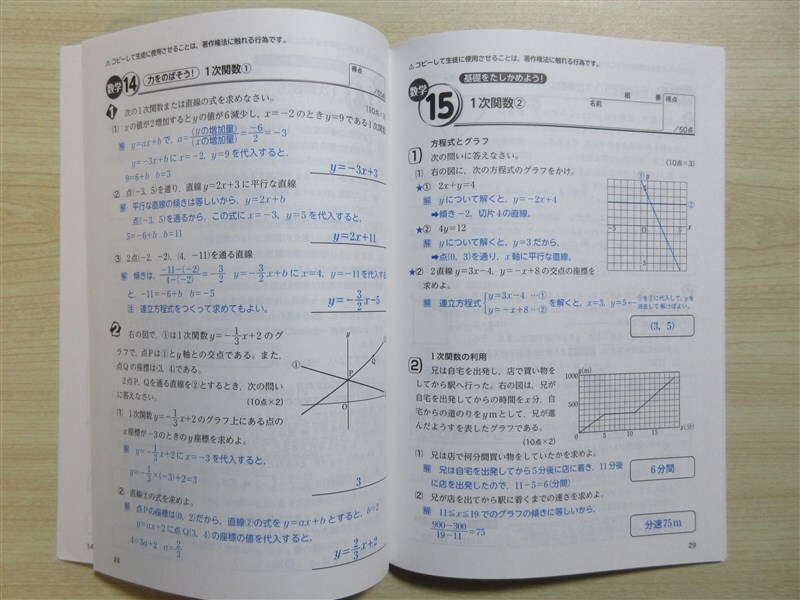 ⚠コピーして生徒に使用させることは、著作権法に触れる行為です。
数学 14 力をのばそう! 1次関数①
得点
/50点
1 次の1次関数または直線の式を求めなさい。
⑴ xの値が2増加するとyの値が6減少し、x=−2のときy=9である1次関数
解 y=ax+bで、a=(yの増加量)/(xの増加量)=−6/2=−3
y=−3x+bにx=−2、y=9を代入すると、
9=6+b b=3
y=−3x+3
⑵ 点(−3, 5)を通り、直線y=2x+3に平行な直線
解 平行な直線の傾きは等しいから、y=2x+b
点(−3, 5)を通るから、この式にx=−3、y=5を代入すると、
5=−6+b b=11
y=2x+11
⑶ 2点(−2, −2)、(4, −11)を通る直線
解 傾きは、−11−(−2)/4−(−2)=−3/2 y=−3/2x+bにx=4、y=−11を代入する
と、−11=−6+b b=−5
注 連立方程式をつくって求めてもよい。
y=−3/2x−5
2 右の図で、①は1次関数y=−1/3x+2のグ
ラフで、点Pは①とy軸との交点である。また、
点Qの座標は(3, 4)である。
2点P、Qを通る直線を②とするとき、次の問い
に答えなさい。
(10点×2)
① y ② Q P O
⑴ 1次関数y=−1/3x+2のグラフ上にある点の
x座標が−3のときのy座標を求めよ。
解 y=−1/3x+2にx=−3を代入すると、
y=−1/3×(−3)+2=3
3
⑵ 直線②の式を求めよ。
解 点Pの座標は(0, 2)だから、直線②の式をy=ax+bとすると、b=2
y=ax+2に点Q(3, 4)の座標の値を代入すると、
4=3a+2 a=2/3
y=2/3x+2
28
⚠コピーして生徒に使用させることは、著作権法に触れる行為です。
数学 15 基礎をたしかめよう!
1次関数②
組 番
名前
得点
/50点
方程式とグラフ
1 次の問いに答えなさい。
(10点×3)
⑴ 右の図に、次の方程式のグラフをかけ。
★① 2x+y=4
解 yについて解くと、y=−2x+4
➡傾き−2、切片4の直線。
★② 4y=12
解 yについて解くと、y=3だから、
➡点(0, 3)を通り、x軸に平行な直線。
① y 5 ② −5 O 5 x −5
★⑵ 2直線y=3x−4、y=−x+8の交点の座標を
求めよ。
解 連立方程式{y=3x−4 …① y=−x+8…② を解くと、x=3、y=5
①を②に代入して、yを
消去して解けばよい。
(3, 5)
1次関数の利用
2 兄は自宅を出発し、店で買い物を
してから駅へ行った。右の図は、兄が
自宅を出発してからの時間をx分、自
宅からの道のりをymとして、兄が進
んだようすを表したグラフである。
(10点×2)
y(m) 1000 500 0 5 10 15 x(分)
⑴ 兄は店で何分間買い物をしていたかを求めよ。
解 兄は自宅を出発してから5分後に店に着き、11分後
に店を出発したので、11−5=6(分間)
6分間
⑵ 兄が店を出てから駅に着くまでの速さを求めよ。
解 11≦x≦19でのグラフの傾きに等しいから、
900−300/19−11=75
分速75m
29